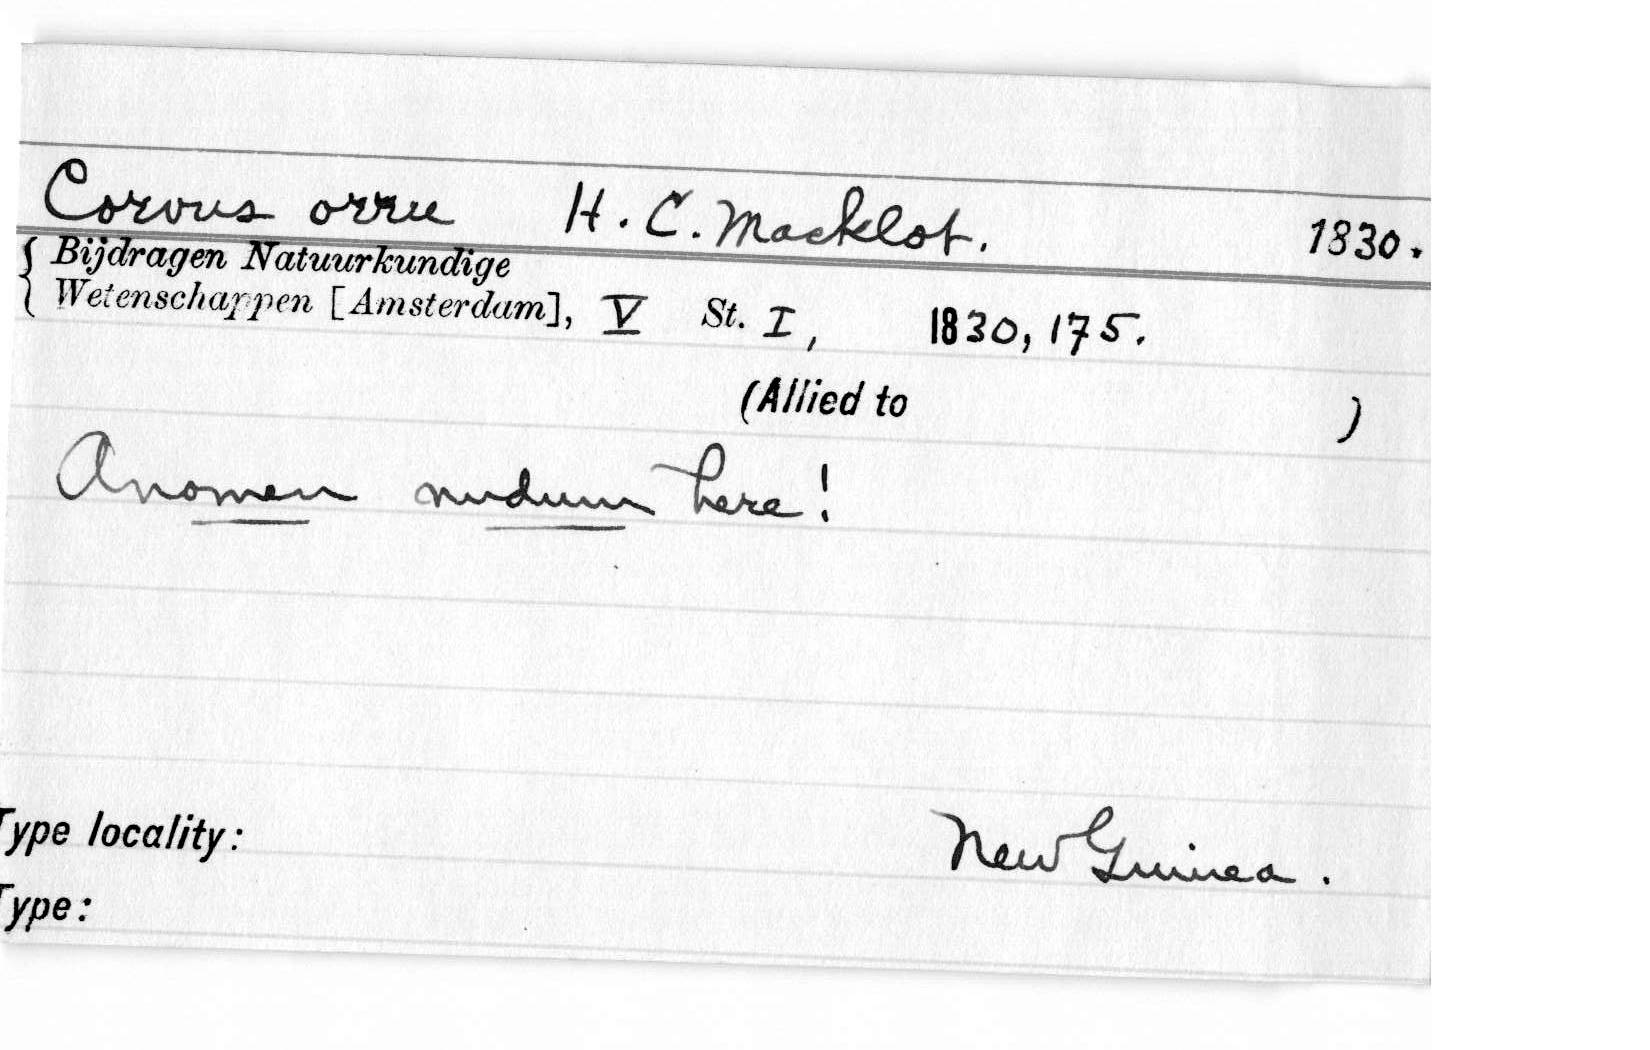 Corvus orru H. C. Macklot. 1830.
Bijdragen Natuurkundige
Wetenschappen [Amsterdam], V St. I, 1830, 175.
(Allied to )
A nomen nudum here!
Type locality: New Guinea.
Type: